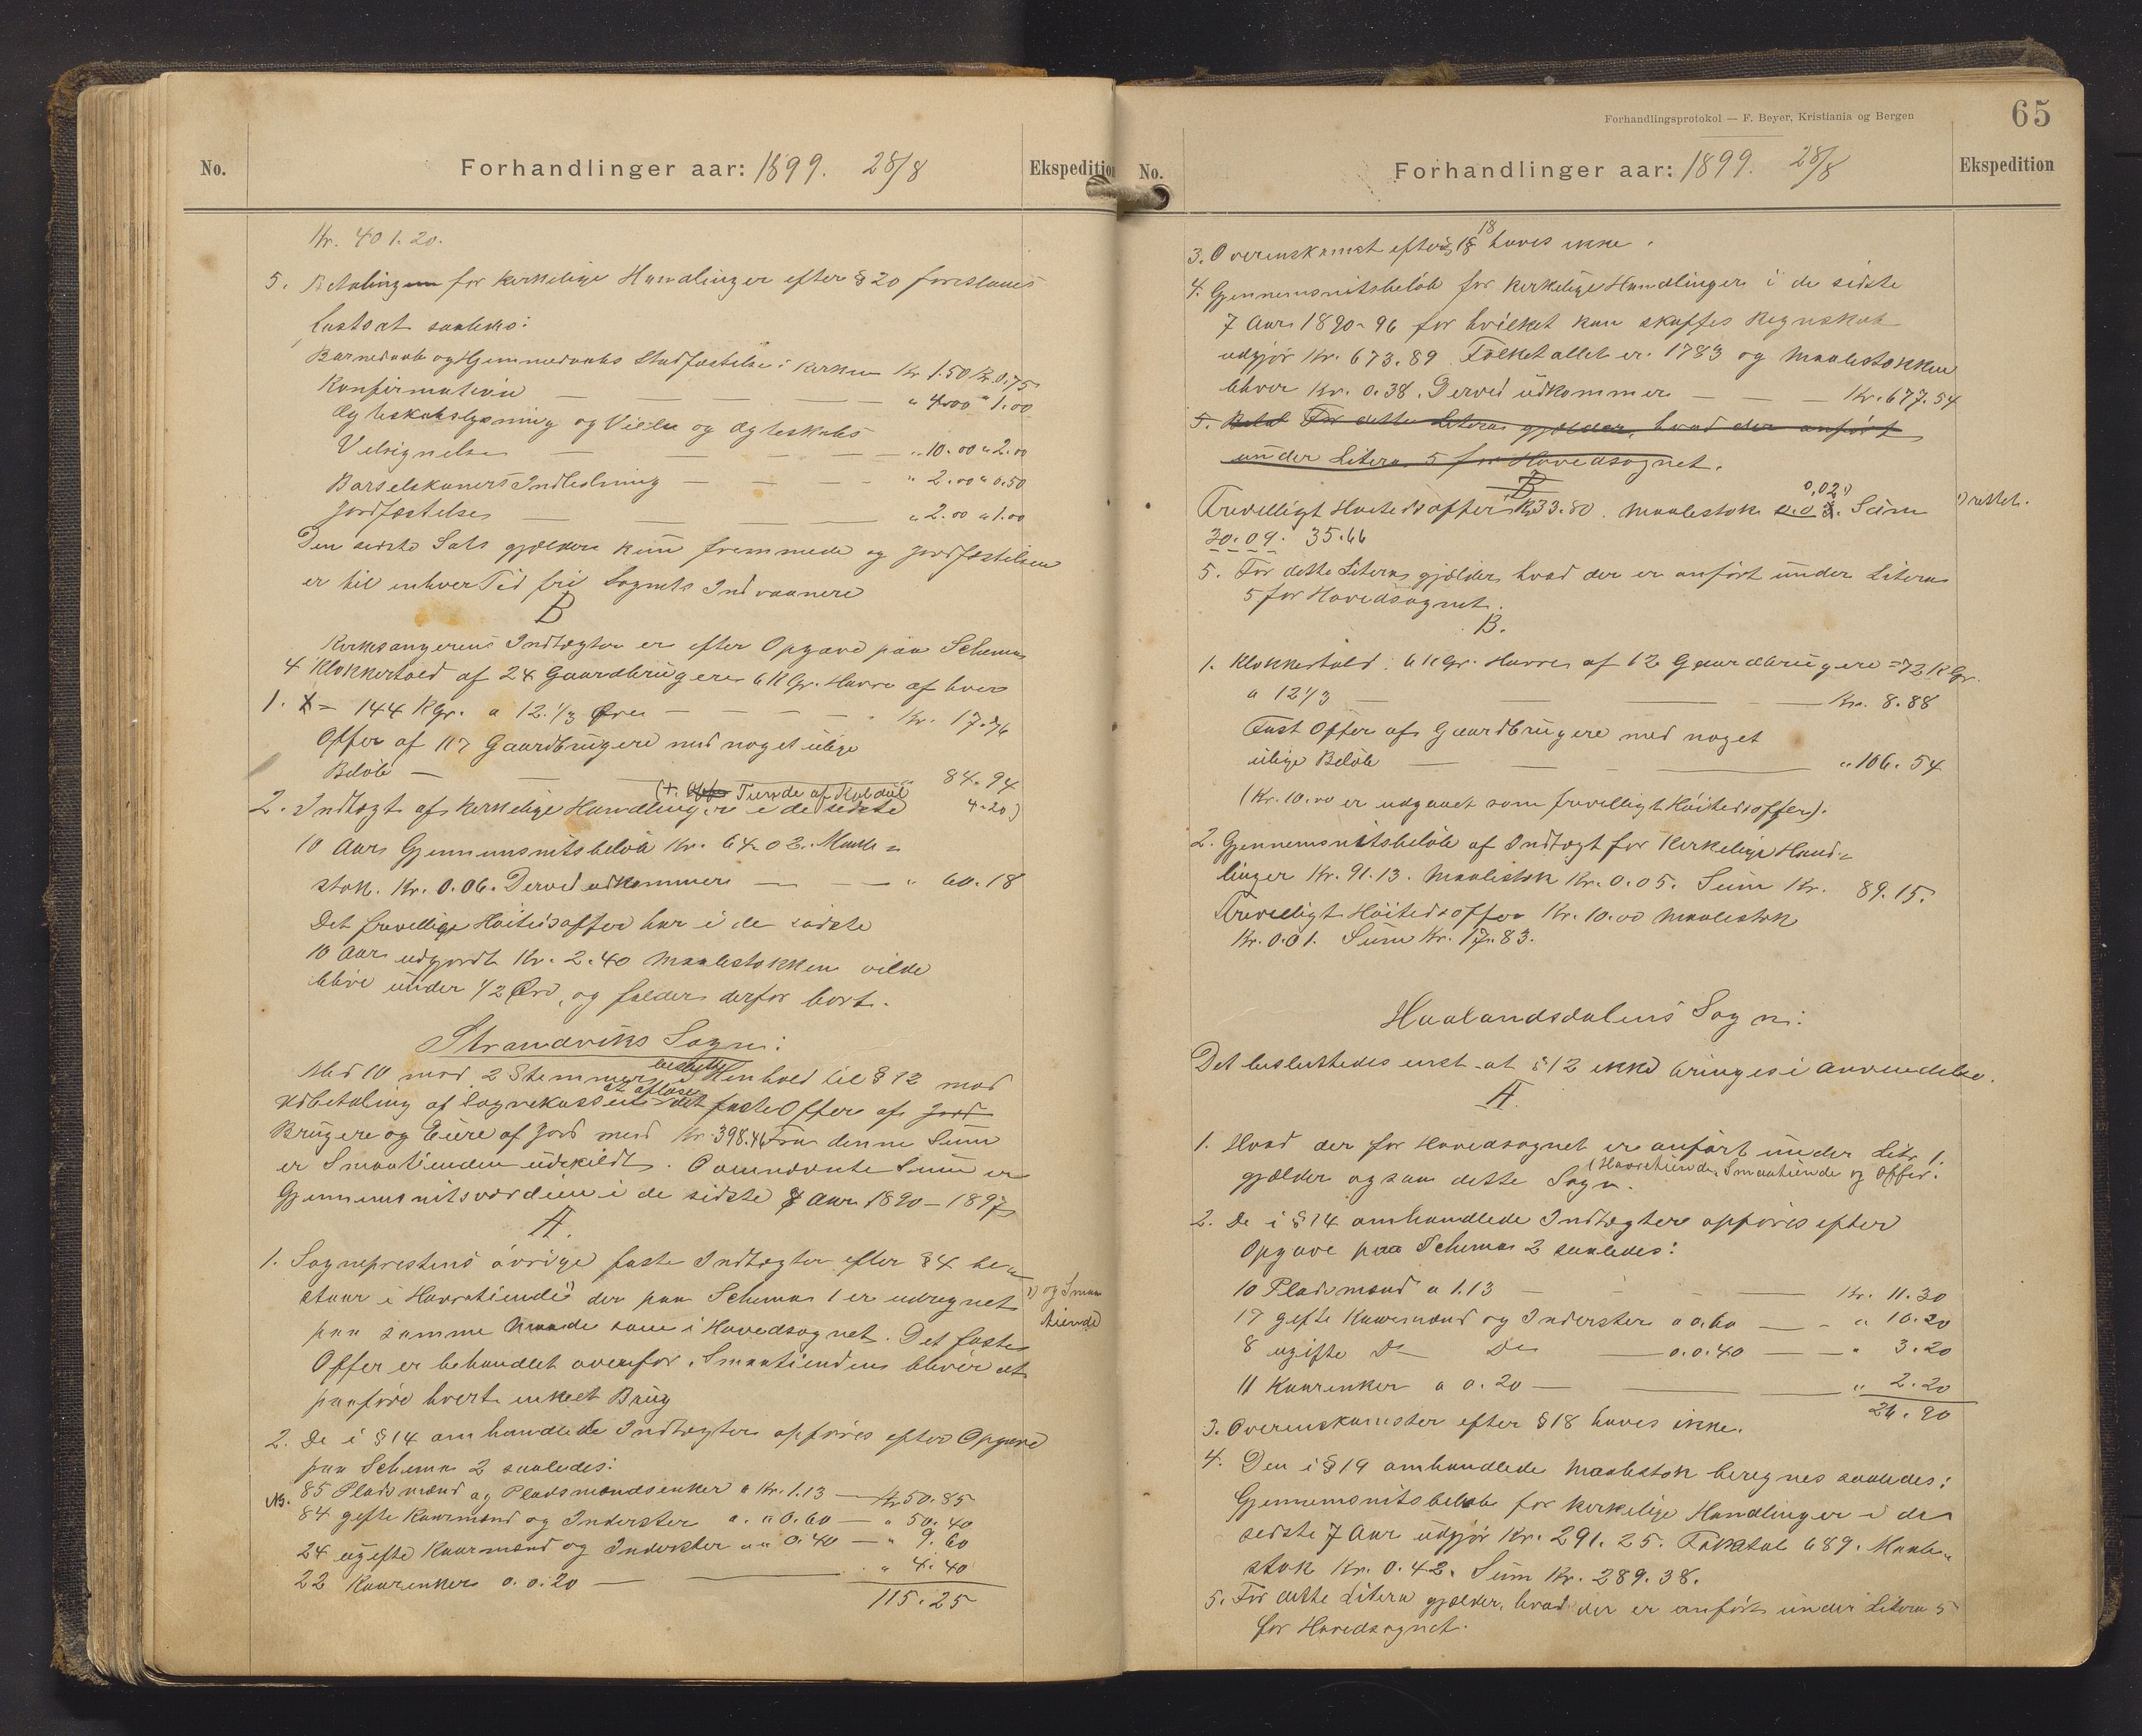 No.
Forhandlinger aar: 1899. 28/8
Ekspedition
Kr. 401.20.
5. Betalingen for kirkelige Handlinger efter § 20 foreslaaes
fastsat saaledes:
Barnedaab og Hjemmedaabs Stadfæstelse i Kirken Kr 1.50 Kr. 0.75
Konfirmation — — — — " 4.00 " 1.00
Ægteskabslysning og Vielse og Ægteskabs
Velsignelse — — — — " 10.00 " 2.00
Barselskoners Indledning — — — — " 2.00 " 0.50
Jordfæstelse — — — " 2.00 " 1.00
Den sidste Sats gjælder kun fremmede og Jordfæstelsen
er til enhver Tid fri Sognets Indvaanere
B
Kirkesangerens Indtægter er efter Opgave paa Schema
4 Klokkertold af 24 Gaardbrugere 6 KGr. Havre af hver
1. = 144 KGr. a 12.1/3 Øre — — — Kr. 17.76
Offer af 117 Gaardbrugere med noget ulige
Beløb — — — 84.94
(+ Tiende af Koldal 4.20)
2. Indtægt af kirkelige Handlinger i de sidste
10 Aar Gjennemsnitsbeløb Kr. 64.02. Maale=
stok. Kr. 0.06. Derved udkommer — — " 60.18
Det frivillige Høitidsoffer har i de sidste
10 Aar udgjordt Kr. 2.40 Maalestokken vilde
blive under 1/2 Øre, og falder derfor bort.
Strandviks Sogn:
Med 10 mod 2 Stemmer besluttedes i Henhold til § 12 mod
Udbetaling af Sognekassen at afløse det faste Offer af Jord
Brugere og Eiere af Jord med Kr 398.46 Fra denne Sum
er Smaatienden udskildt. Oven nævnte Sum er
Gjennemsnitsværdien i de sidste 8 Aar 1890-1897
A.
1. Sogneprestens øvrige faste Indtægter efter § 4 be=
staar i Havretiende 1) der paa Schema 1 er udregnet
1) og Smaa
tiende
paa samme Maade som i Hovedsognet. Det faste
Offer er behandlet ovenfor. Smaatienden bliver at
paaføre hvert enkelt Brug
2. De i § 14 omhandlede Indtægter opføres efter Opgave
paa Schema 2 saaledes:
NB. 85 Pladsmænd og Pladsmandsenker a Kr. 1.13 — Kr 50.85
84 gifte Kaarmænd og Inderster a. " 0.60 — " 50.40
24 ugifte Kaarmænd og Inderster " " 0.40 — " 9.60
22 Kaarenker a. 0.20 — — " 4.40
115.25
Forhandlingsprotokol — F. Beyer, Kristiania og Bergen
65
No.
Forhandlinger aar: 1899. 28/8
Ekspedition
3. Overenskomst efter § 18 haves ikke.
4. Gjennemsnitsbeløb for kirkelige Handlinger i de sidste
7 Aar 1890-96 for hvilket kan skaffes Regnskab
udgjør Kr. 673.89 Folketallet er 1783 og Maalestokken
bliver Kr. 0.38. Derved udkommer — — — Kr. 677.54
5. Betal For dette Litera gjælder, hvad der anført
under Litera 5 for Hovedsognet.
B
Frivilligt Høitidsoffer Kr 33.80. Maalestok 0.03. 0,02 1) Sum
1) rettet.
30.09. 35.66
5. For dette Litera gjælder hvad der er anført under Litera
5 for Hovedsognet.
B.
1. Klokkertold. 6 KGr. Havre af 12 Gaardbrugere = 72 KGr.
a 12 1/3 — — — Kr. 8.88
Fast Offer af Gaardbrugere med noget
ulige Beløb — — — " 106.54
(Kr. 10.00 er udgaaet som frivilligt Høitidsoffer).
2. Gjennemsnitsbeløb af Indtægt for kirkelige Hand=
linger Kr. 91.13. Maalestok Kr. 0.05. Sum Kr. 89.15.
Frivilligt Høitidsoffer Kr. 10.00 Maalestok
Kr. 0.01. Sum Kr. 17.83.
Haalandsdalens Sogn:
Det besluttedes enst. at § 12 ikke bringes i Anvendelse.
A.
1. Hvad der for Hovedsognet er anført under Litr 1.
gjælder ogsaa dette Sogn. (Havretiende, Smaatiende og Offer.
2. De i § 14 omhandlede Indtægter opføres efter
Opgave paa Schema 2 saaledes:
10 Pladsmænd a 1.13 — — Kr. 11.30
17 gifte Kaarmænd og Inderster a 0.60 — " 10.20
8 ugifte Do Do — a. 0.40 — " 3.20
11 Kaarenker a 0.20 — — " 2.20
26.90
3. Overenskomster efter § 18 haves ikke.
4. Den i § 19 omhandlede Maalestok beregnes saaledes:
Gjennemsnitsbeløb for kirkelige Handlinger i de
sidste 7 Aar udgjør Kr. 291.25. Folketal 689. Maale=
stok Kr. 0.42. Sum Kr. 289.38.
5. For dette Litera gjælder, hvad der er anført under Litera 5
for Hovedsognet.